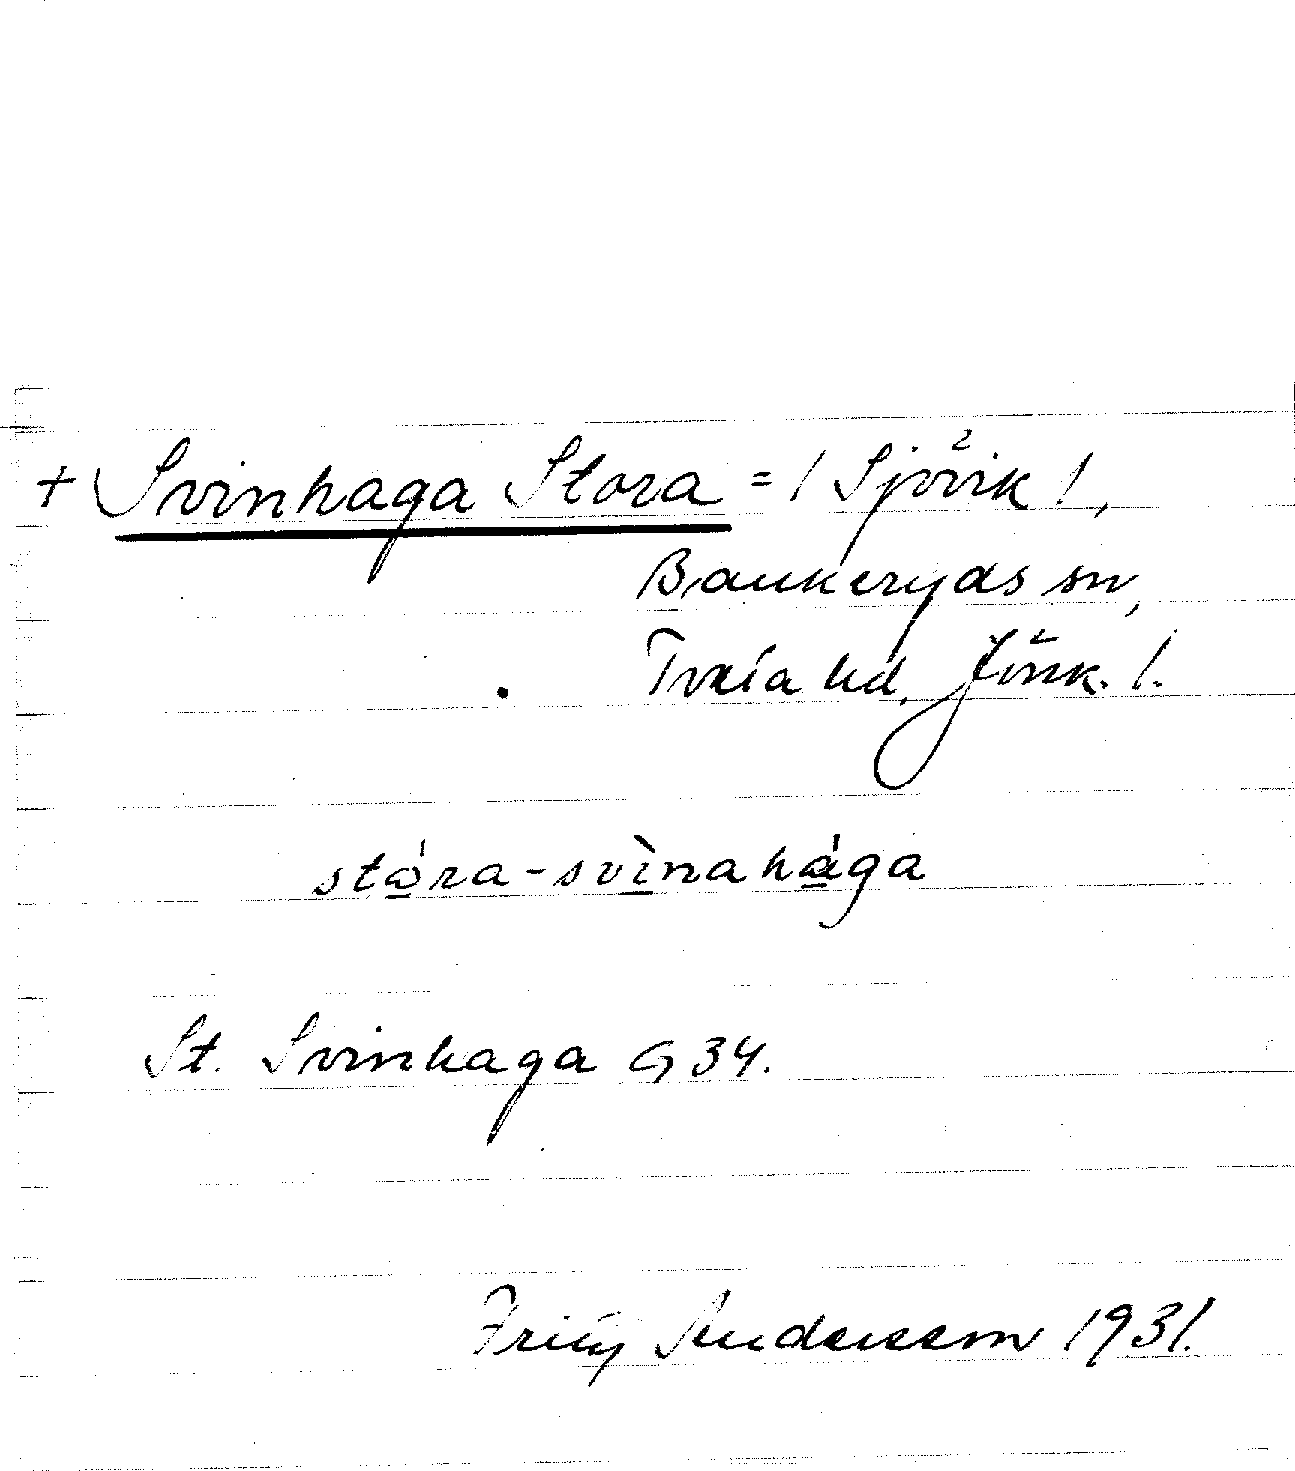 + Svinhaga Stora = / Sjövik /,
Bankeryds sn,
Tveta hd, Jönk. l.
stǫ́ra-svìnahága
St. Svinhaga G 34.
Andersson 1931.